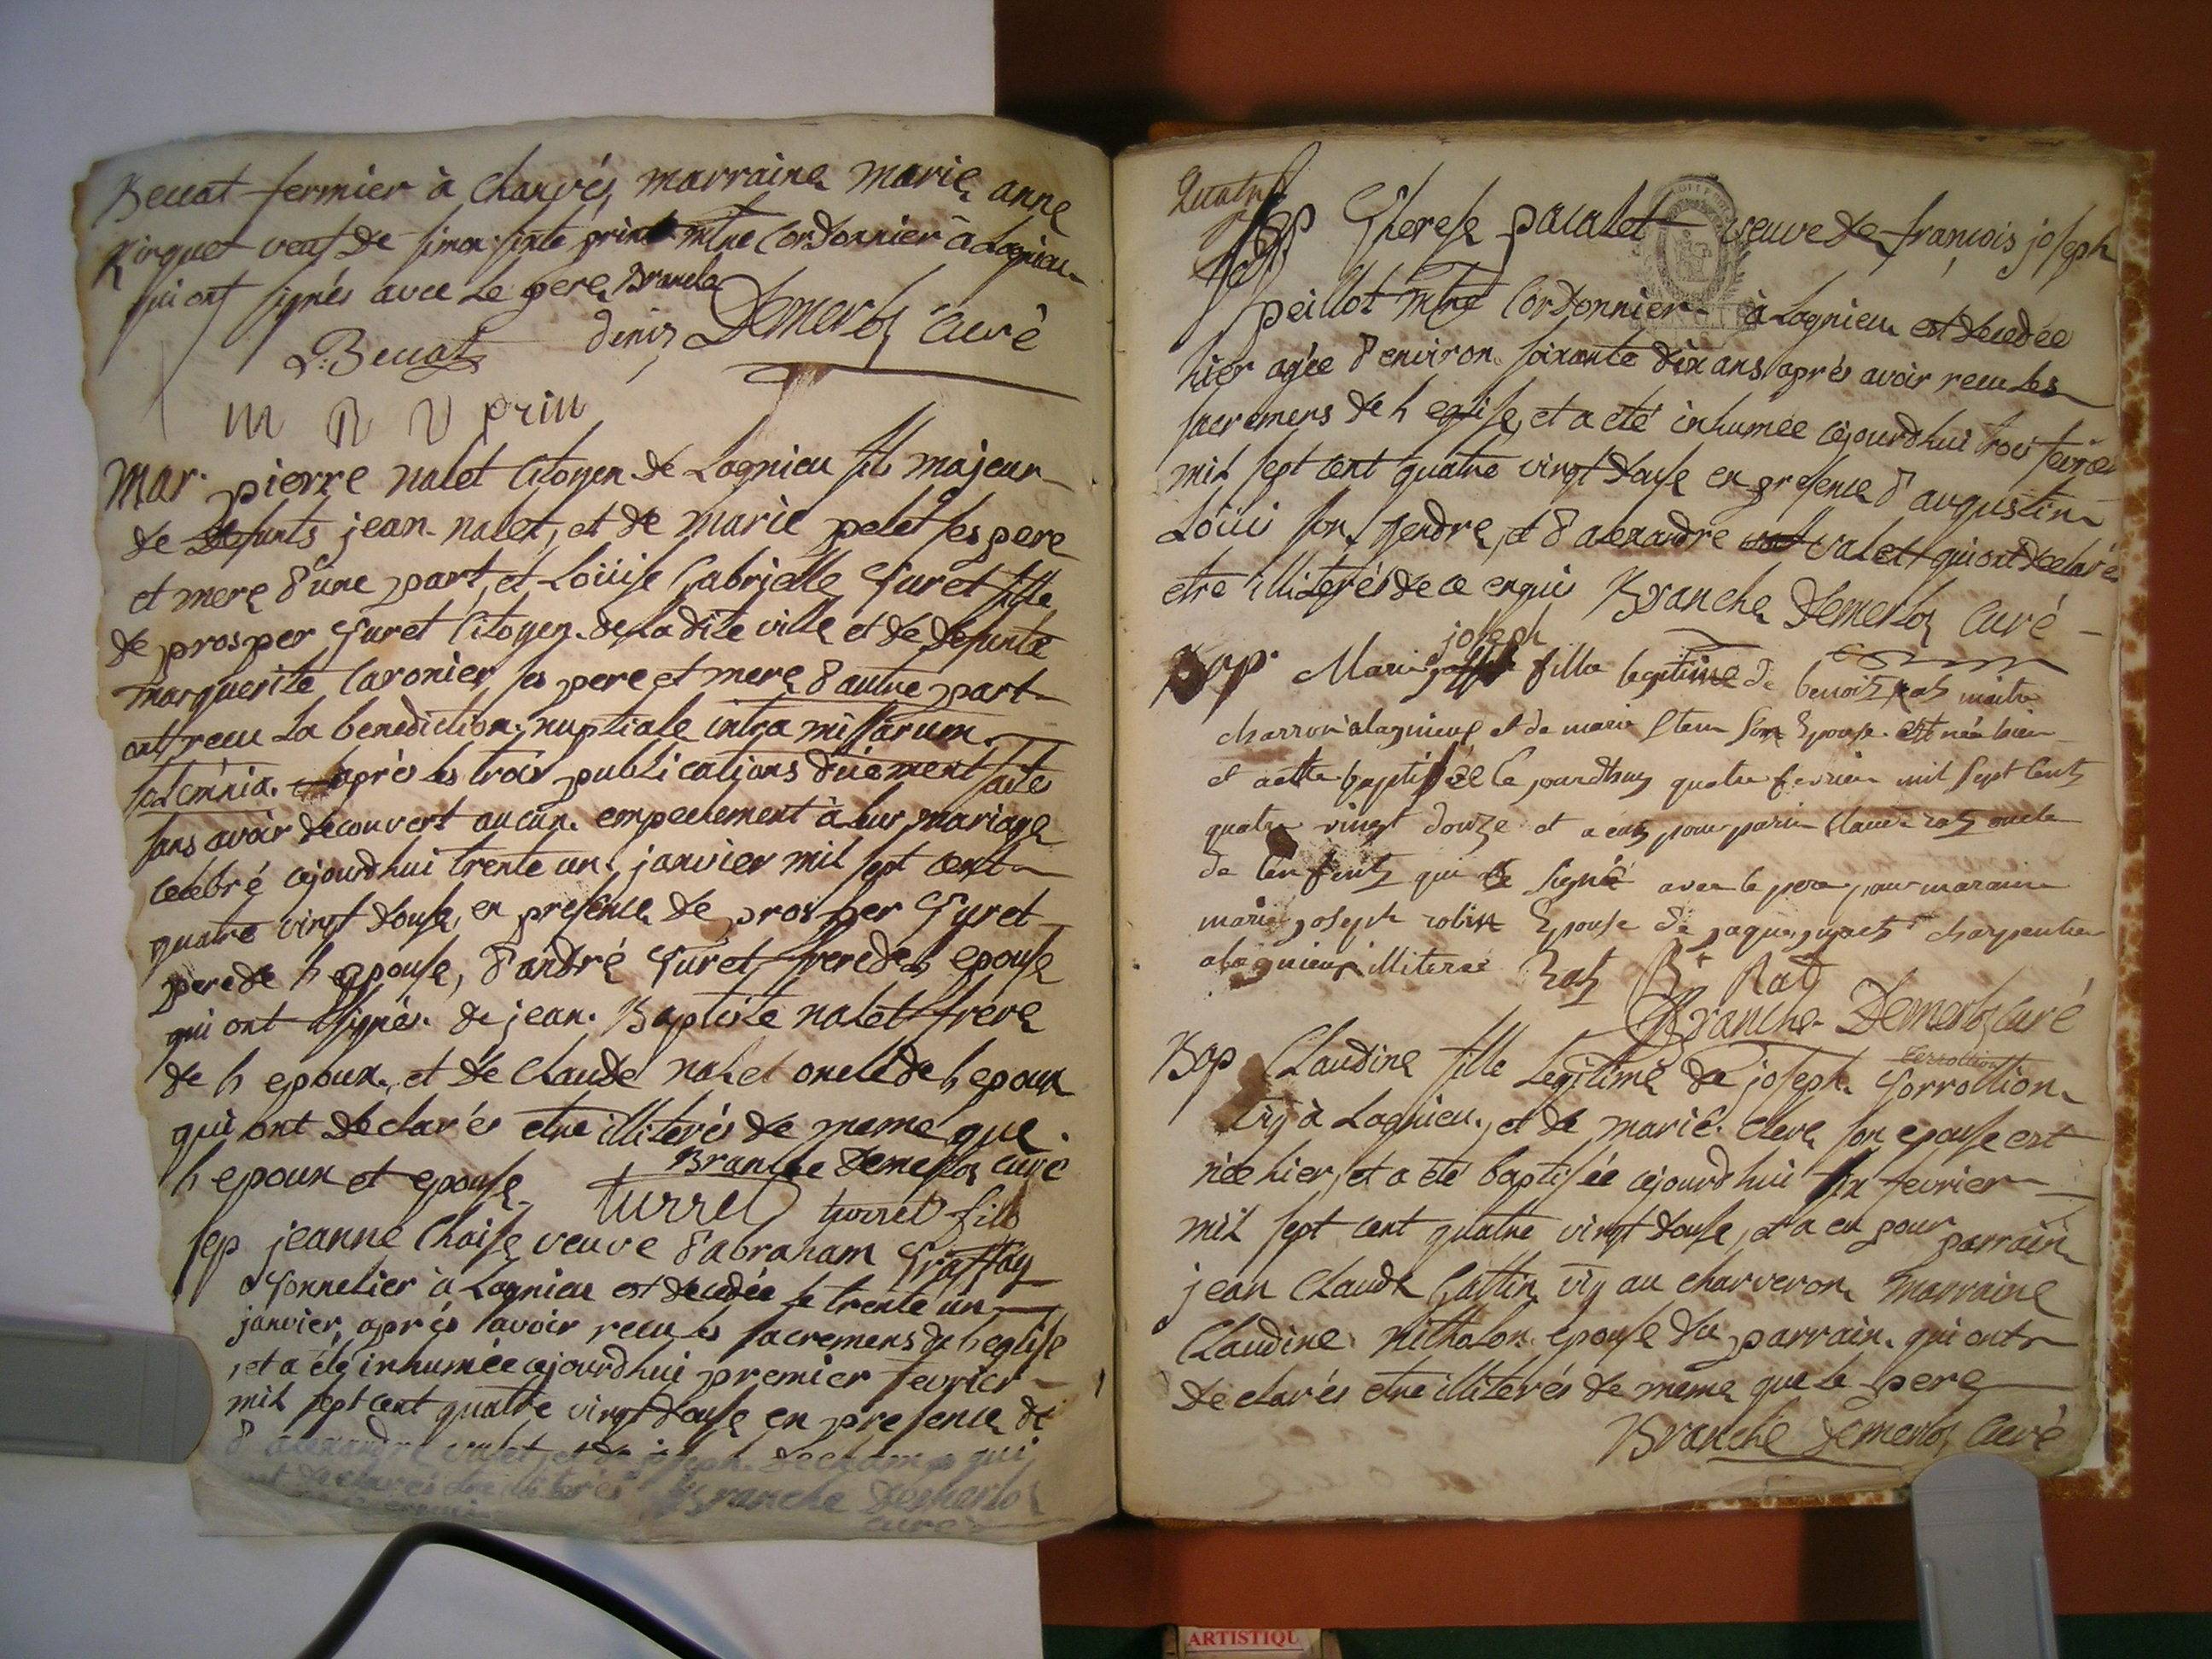 Beccat fermier à Charvés, marraine marie anne
Kirquet veuf de simon prin mtre Cordonnier à Lagnieu
qui ont signés avec Le pere, Branche
L. Beccat deniz Demerloz Curé
m R V prin
Mar. pierre nalet Citoyen de Lagnieu fils majeur
de defunts jean nalet, et de marie pelet ses pere
et mere d'une part, et Loüise Gabrielle Turet fille
de prosper Turet Citoyen de Ladite ville et de defunte
marguerite Caronier ses pere et mere d'autre part
ont recu La benediction nuptiale intra missarum
solemnia. après les trois publications düement faites
sans avoir decouvert aucun empechement à leur mariage
celebré cejourdhui trente un janvier mil sept cent
quatre vingt douse, en presence de prosper Turet
pere de h epouse, d'andré Turet frere de h epouse
qui ont signés. de jean Baptiste nalet frere
de h epoux, et de Claude nalet oncle de h epoux
qui ont declarés etre illiterés de meme que
h epoux et epouse. Branche Demerloz Curé
turrel turrel fils
sep jeanne Chaise veuve d'abraham
Tonnelier à Lagnieu est decedée le trente un
janvier, après avoir recu les sacremens de h eglise
, et a été inhumée cejourdhui premier fevrier
mil sept cent quatre vingt douse en presence de
d'alexandre valet, et de joseph dechamp qui
ont declarés etre illiterés Branche Demerloz
Curé
Quatre
Sep Therese pacalet veuve de françois joseph
peillot mtre Cordonnier à Lagnieu est decedée
hier agée d'environ soixante dix ans après avoir recu les
sacremens de h eglise, et a eté inhumée cejourdhui trois fevrier
mil sept cent quatre vingt douse en presence d'augustin
Loüis son gendre, et d'alexandre valet qui ont declarés
etre illiterés de ce enquis Branche Demerloz Curé
joseph
Bap. Marie fille legitime de benoit ratz maitre
charron alagnieux et de marie son Epouse est née hier
et aette baptissée Ce jourdhuy quatre fevrier mil sept Cents
quatre vingt douze et a euts pour parin Claude ratz oncle
de lenfents qui a signé avec le pere pour maraine
marie joseph robin Epouse de jaque charpentier
alagnieux illiterée Ratz Bt Ratz
Branche Demerloz Curé
Terrollion
Bap Claudine fille Legitime de joseph Torrollion
vig à Lagnieu, et de marie Cleve son epouse est
née hier, et a eté baptisée cejourdhui six fevrier
mil sept cent quatre vingt douse, et a eu pour parrain
jean Claude Gattin vig au charveron marraine
Claudine nitholon epouse du parrain qui ont
declarés etre illiterés de meme que le pere
Branche Demerloz Curé
ARTISTIQU